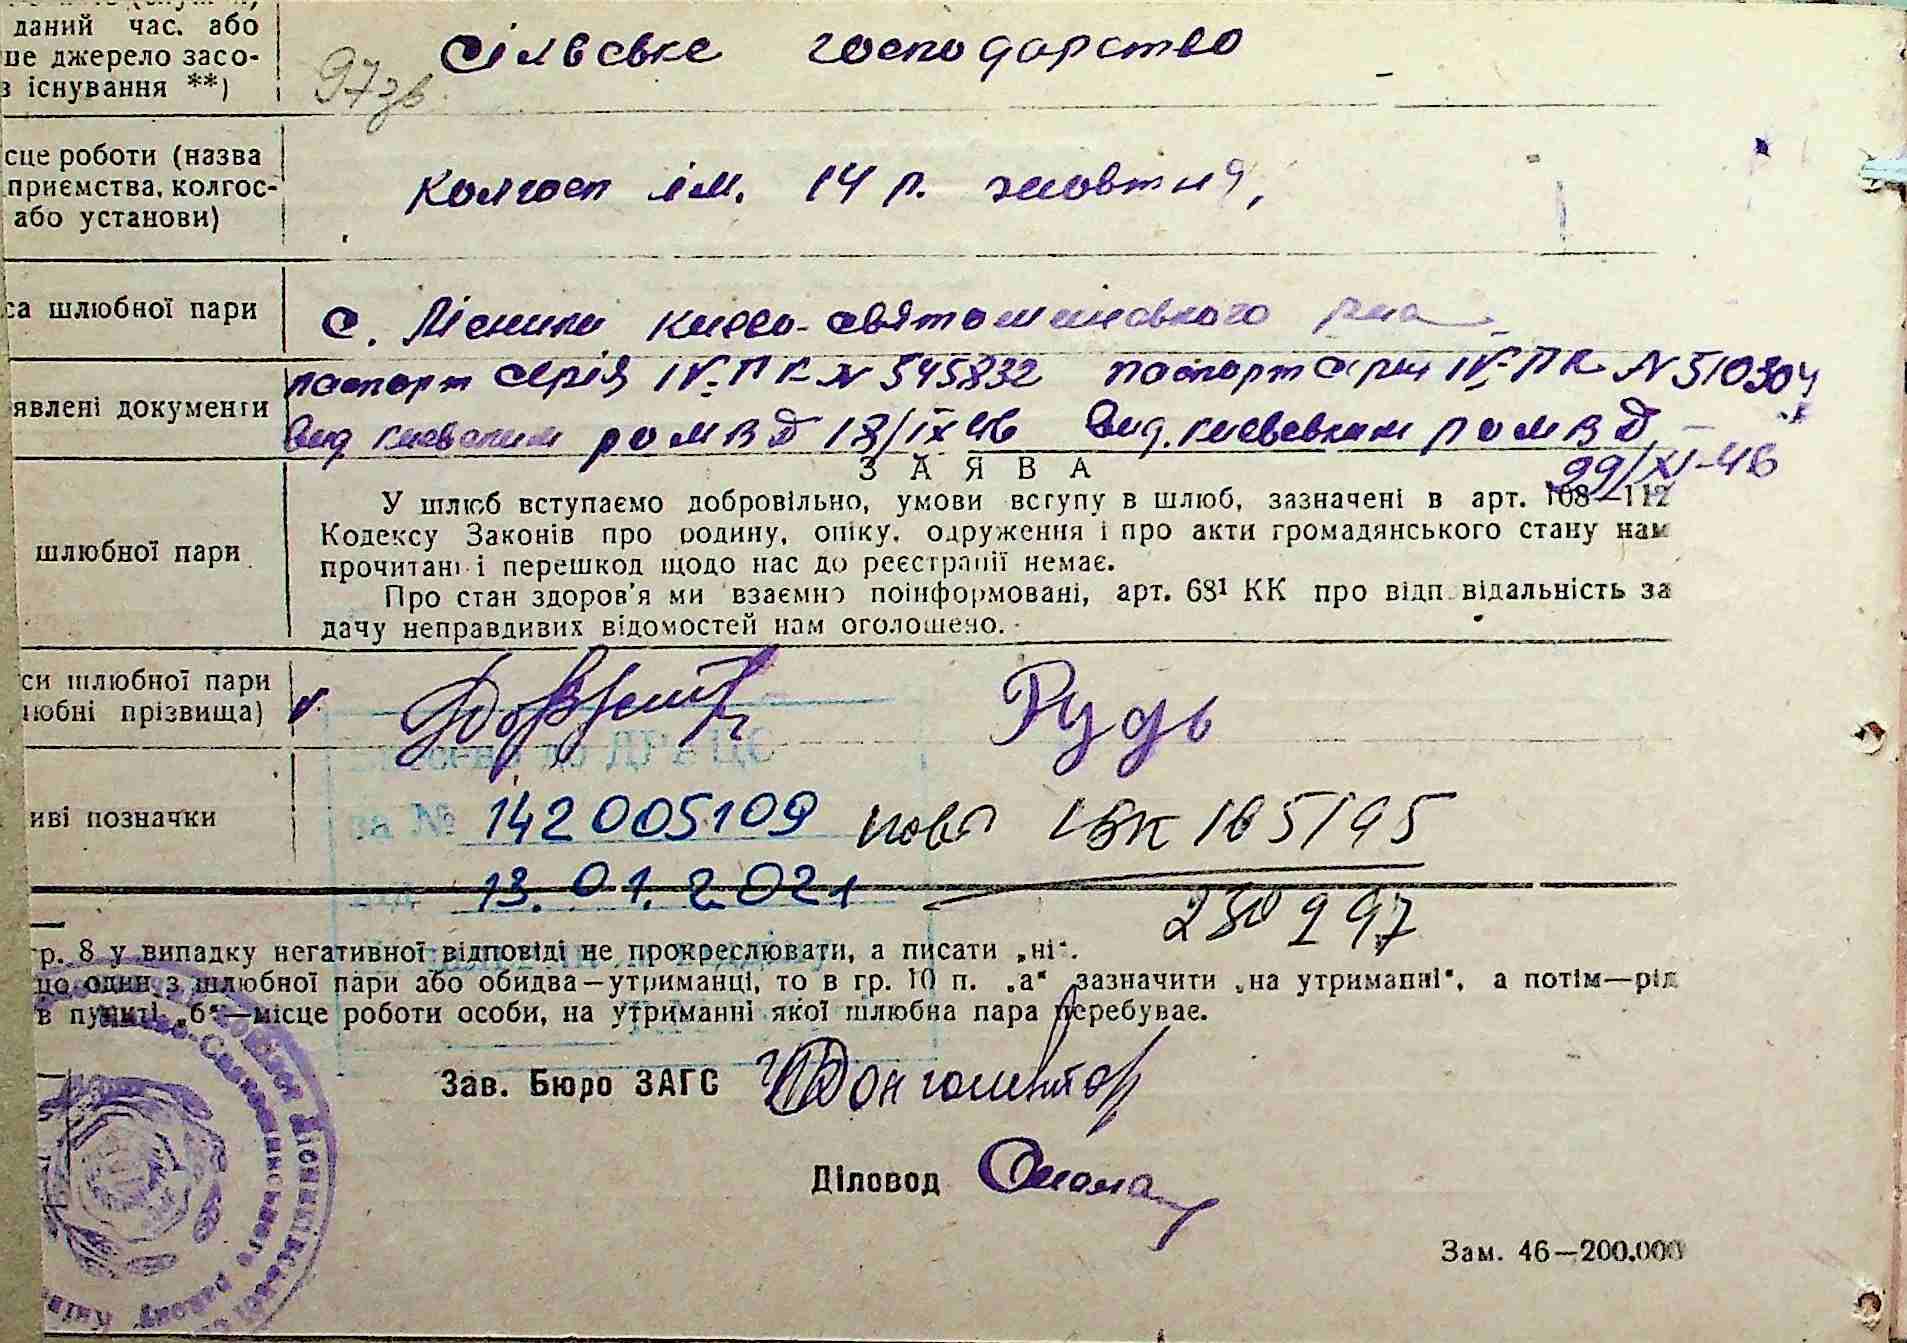 даний час. або
ше джерело засо-
в існування **)
сільське господарство
97зв.
сце роботи (назва
приємства, колгос-
або установи)
колгосп ім. 14 р. жовтня,
са шлюбної пари
с. Лісники києво-святошинського р-на
явлені документи
паспорт серія IV-ПК N 545832 паспорт серія IV-ПК N 510304
Вид. києвским РОМВД 18/IX 46 Вид. києвським РОМВД
29/XI-46
ЗАЯВА
шлюбної пари
У шлюб вступаємо добровільно, умови вступу в шлюб, зазначені в арт. 108—112
Кодексу Законів про родину, опіку, одруження і про акти громадянського стану нам
прочитані і перешкод щодо нас до реєстрації немає.
Про стан здоров'я ми взаємно поінформовані, арт. 68¹ КК про відповідальність за
дачу неправдивих відомостей нам оголошено.
си шлюбної пари
любні прізвища)
Рудь
несено до ДРАЦС
иві позначки
за № 142005109
від 13.01.2021
повт І-БК 165195
230997
гр. 8 у випадку негативної відповіді не прокреслювати, а писати „ні“.
що один з шлюбної пари або обидва—утриманці, то в гр. 10 п. „а“ зазначити „на утриманні“, а потім—рід
в пункті „б“—місце роботи особи, на утриманні якої шлюбна пара перебуває.
Зав. Бюро ЗАГС
Діловод
Зам. 46—200.000